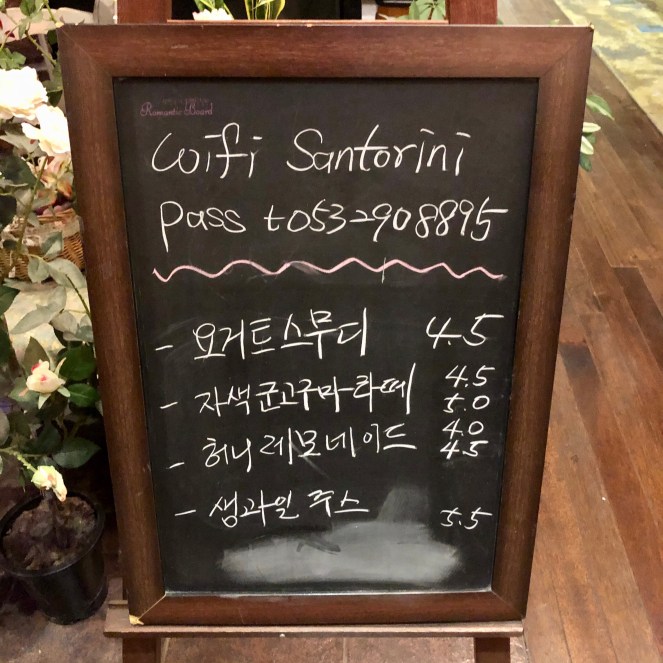 Romantic Board
Wifi Santorini
pass t0532908895
- 요거트스무디 4.5
- 자색군고구마라떼 4.5 5.0
- 허니레모네이드 4.0 4.5
- 생과일 쥬스 5.5